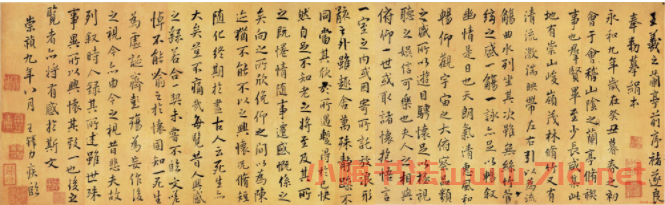 王羲之蘭亭前序褚遂良
奉勅摹絹本
永和九年歲在癸丑暮春之初
會于會稽山陰之蘭亭脩禊
事也羣賢畢至少長咸集此
地有崇山峻嶺茂林脩竹又有
清流激湍映帶左右引以為流
觴曲水列坐其次雖無絲竹管
絃之盛一觴一詠亦足以暢敘
幽情是日也天朗氣清惠風和
暢仰觀宇宙之大俯察品類
之盛所以遊目騁懷足以極視
聽之娛信可樂也夫人之相與
俯仰一世或取諸懷抱悟言
一室之內或因寄所託放浪形
骸之外雖趣舍萬殊靜躁不
同當其欣於所遇暫得於己快
然自足不知老之將至及其所
之既惓情隨事遷感慨係之
矣向之所欣俛仰之間以為陳
迹猶不能不以之興懷況脩短
隨化終期於盡古人云死生亦
大矣豈不痛哉每覽昔人興感
之由若合一契未嘗不臨文嗟
悼不能喻之於懷固知一死生
為虛誕齊彭殤為妄作後
之視今亦由今之視昔悲夫故
列敘時人錄其所述雖世殊
事異所以興懷其致一也後之
覽者亦將有感於斯文
崇禎九年八月 王鐸力疾臨
www.7ld.net